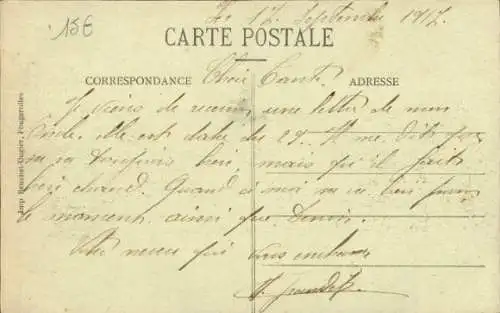 15€
Le 17 Septembre 1917.
CARTE POSTALE
CORRESPONDANCE
Chère Tante
ADRESSE
Je viens de recevoir une lettre de mon
Oncle. Elle est datée du 29. Il me dit que
ça va toujours bien, mais qu'il fait
bien chaud. Quand à moi ça va bien pour
le moment ainsi que Denise.
Votre neveu qui vous embrasse
Imp. Reuchet-Ougier, Fougerolles